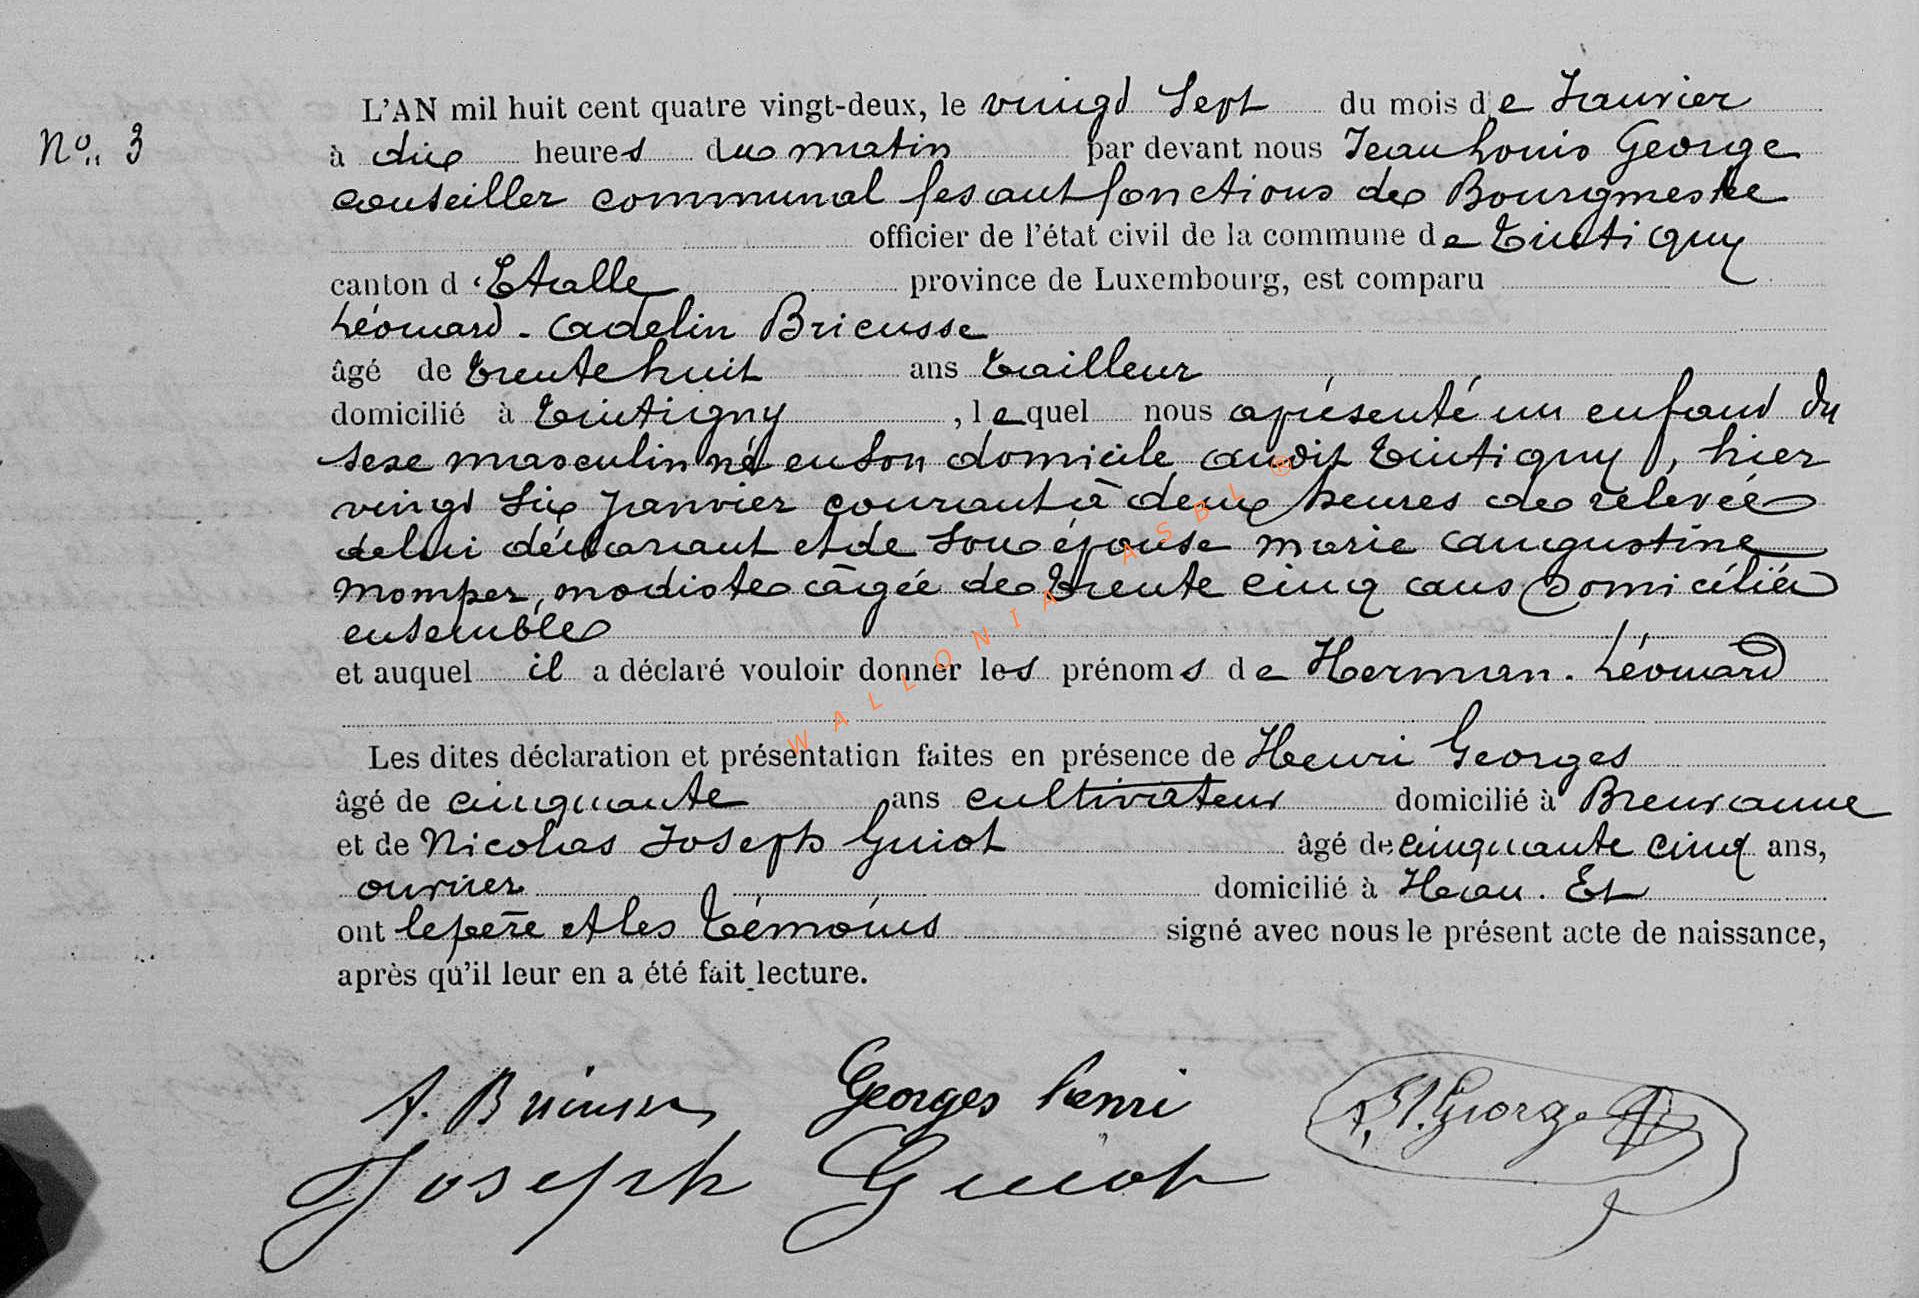 L'AN mil huit cent quatre vingt-deux, le vingt Sept du mois de Janvier
N° 3
à dix heures du matin par devant nous Jean Louis George
conseiller communal fesant fonctions de Bourgmestre
officier de l'état civil de la commune de Tintigny
canton d'Etalle province de Luxembourg, est comparu
Léonard-Adelin Brieusse
âgé de trente huit ans tailleur
domicilié à Tintigny, lequel nous a présenté un enfant du
sexe masculin né en son domicile audit Tintigny, hier
vingt six janvier courant à deux heures de relevée
de lui déclarant et de son épouse marie augustine
momper, modiste âgée de trente cinq ans domiciliés
ensemble
et auquel il a déclaré vouloir donner les prénoms de Herman. Léonard
Les dites déclaration et présentation faites en présence de Henri Georges
âgé de cinquante ans cultivateur domicilié à Breuvanne
et de Nicolas Joseph Guiot âgé de cinquante cinq ans,
ouvrier domicilié à Han. Et
ont le père et les témoins signé avec nous le présent acte de naissance,
après qu'il leur en a été fait lecture.
A. Brieusse Georges henri J. L. George
Joseph Guiot
WALLONIA ASBL ®